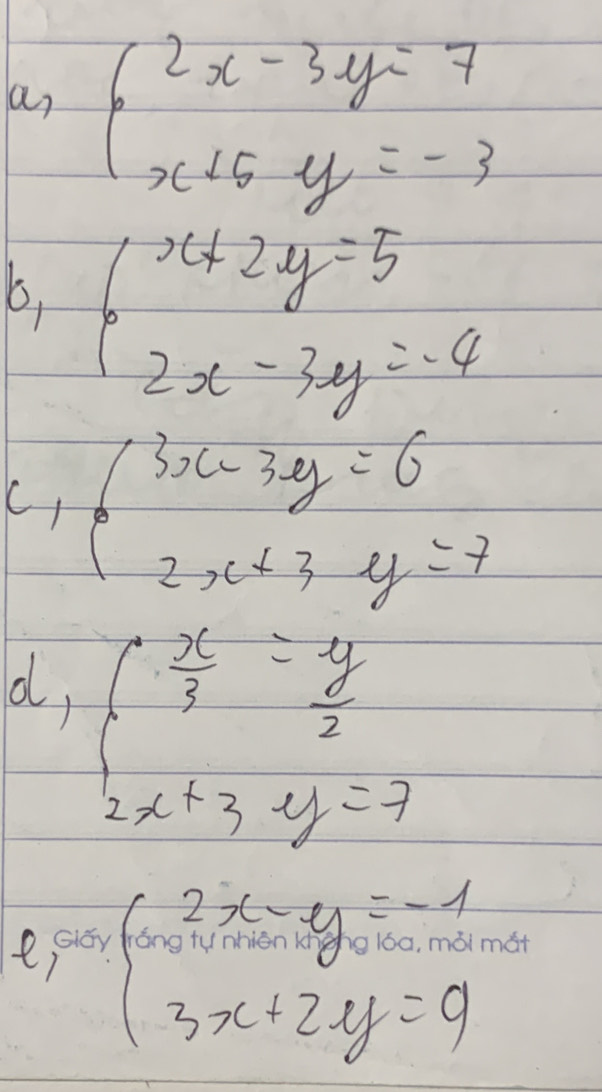 a, { 2x - 3y = 7
x + 5 y = - 3
b, { x + 2y = 5
2x - 3y = - 4
c, { 3x - 3y = 6
2x + 3 y = 7
d, { x/3 = y/2
2x + 3 y = 7
e, { 2x - y = - 1
Giấy trắng tự nhiên không lóa, mỏi mắt
3x + 2y = 9